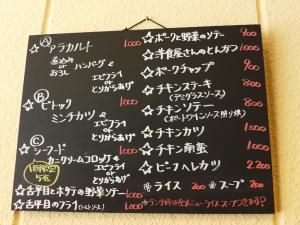 Ⓐ
☆アラカルト 1,000
煮込み or おろし ハンバーグ
&
エビフライ or とりからあげ
Ⓑ
☆ビトック 1,000
ミンチカツ
&
エビフライ or とりからあげ
Ⓒ
☆シーフード 1,000
カニクリームコロッケ
&
エビフライ or とりからあげ
1日限定 5食
☆舌平目とホタテの野菜ソテー 1000
☆舌平目のフライ 1000
☆ポークと野菜のソテー 900
☆洋食屋さんのとんかつ 1000
☆ポークチャップ 900
☆チキンステーキ 800
(デミグラスソース)
☆チキンソテー 800
(ポートワインソース照り焼)
☆チキンカツ 1000
☆チキン南蛮 1000
☆ビーフヘレカツ 2,200
※ライス 200 ※スープ 200